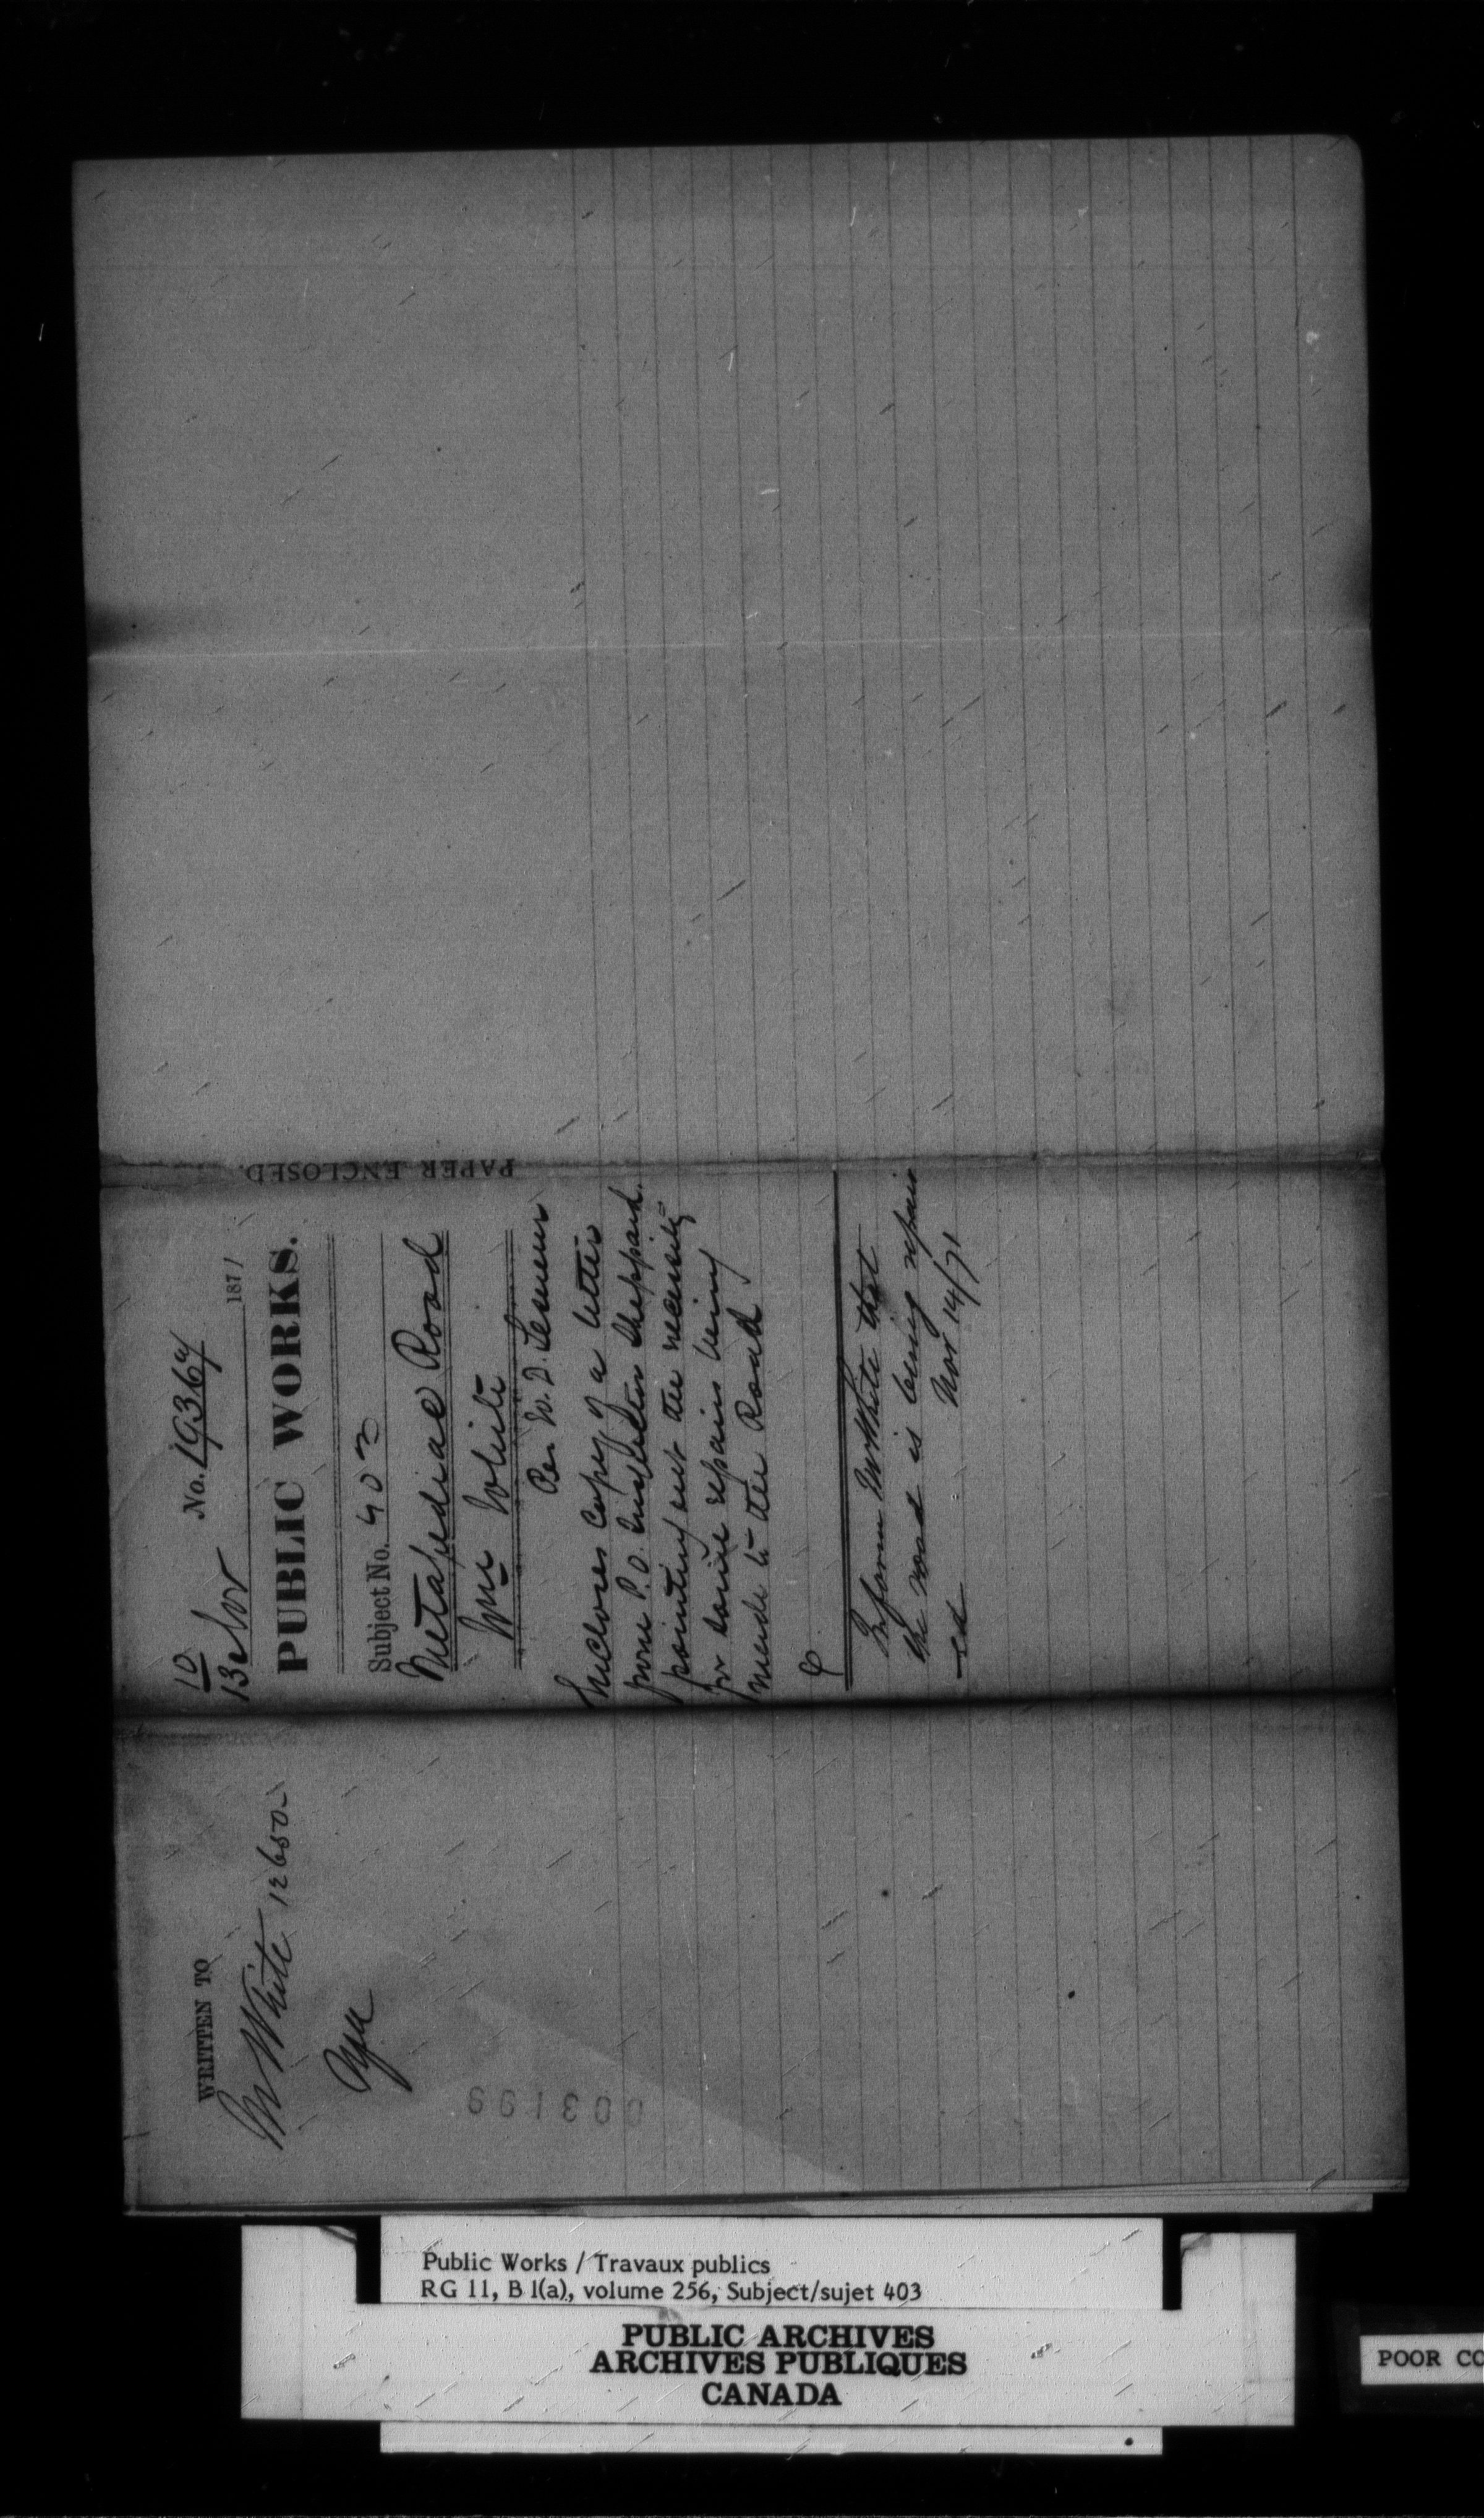 10
13 Nov No. 19364 1871
PUBLIC WORKS.
Subject No. 403
Metapediac Road
Wm White
Per W. D.
Encloses Copy of a letter
from P.O. Inspector Sheppard.
pointing out the necessity
for some repairs being
made to the Road.
Inform Mr White that
the road is being repair
-ed Nov 14/71
PAPER ENCLOSED.
WRITTEN TO
Mr White 12650
003199
Public Works / Travaux publics
RG 11, B 1(a), volume 256, Subject/sujet 403
PUBLIC ARCHIVES
ARCHIVES PUBLIQUES
CANADA
POOR CO